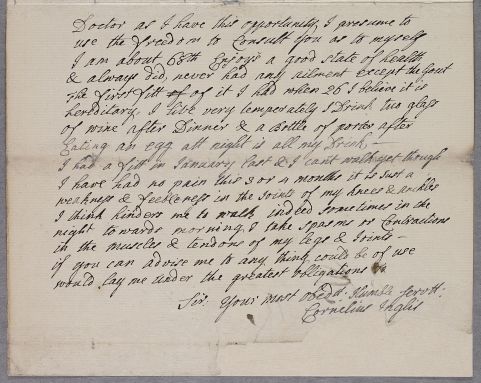 Doctor as I have this opportunity, I presume to
use the freedom to Consult you as to myself
I am about 68th Enjoys a good state of health
& always did, never had any ailment except the Gout
The first fitt of it I had when 26 I believe it is
hereditary. I live very temperately I Drink two glass
of wine after Dinner & a Bottle of porter after
Eating an egg att night is all my Drink, —
I had a fitt in January last & I can't walk yet though
I have had no pain this 3 or 4 months it is Just a
weakness & feebleness in the Joints of my knees & anckles
I think hinders me to walk indeed sometimes in the
night towards morning, I take spasms or Contractions
in the muscles & tendons of my legs & Joints —
if you can advise me to any thing could be of use
would lay me under the greatest obligations
Sir. Your most obedt. Humble servtt.
Cornelius Inglis